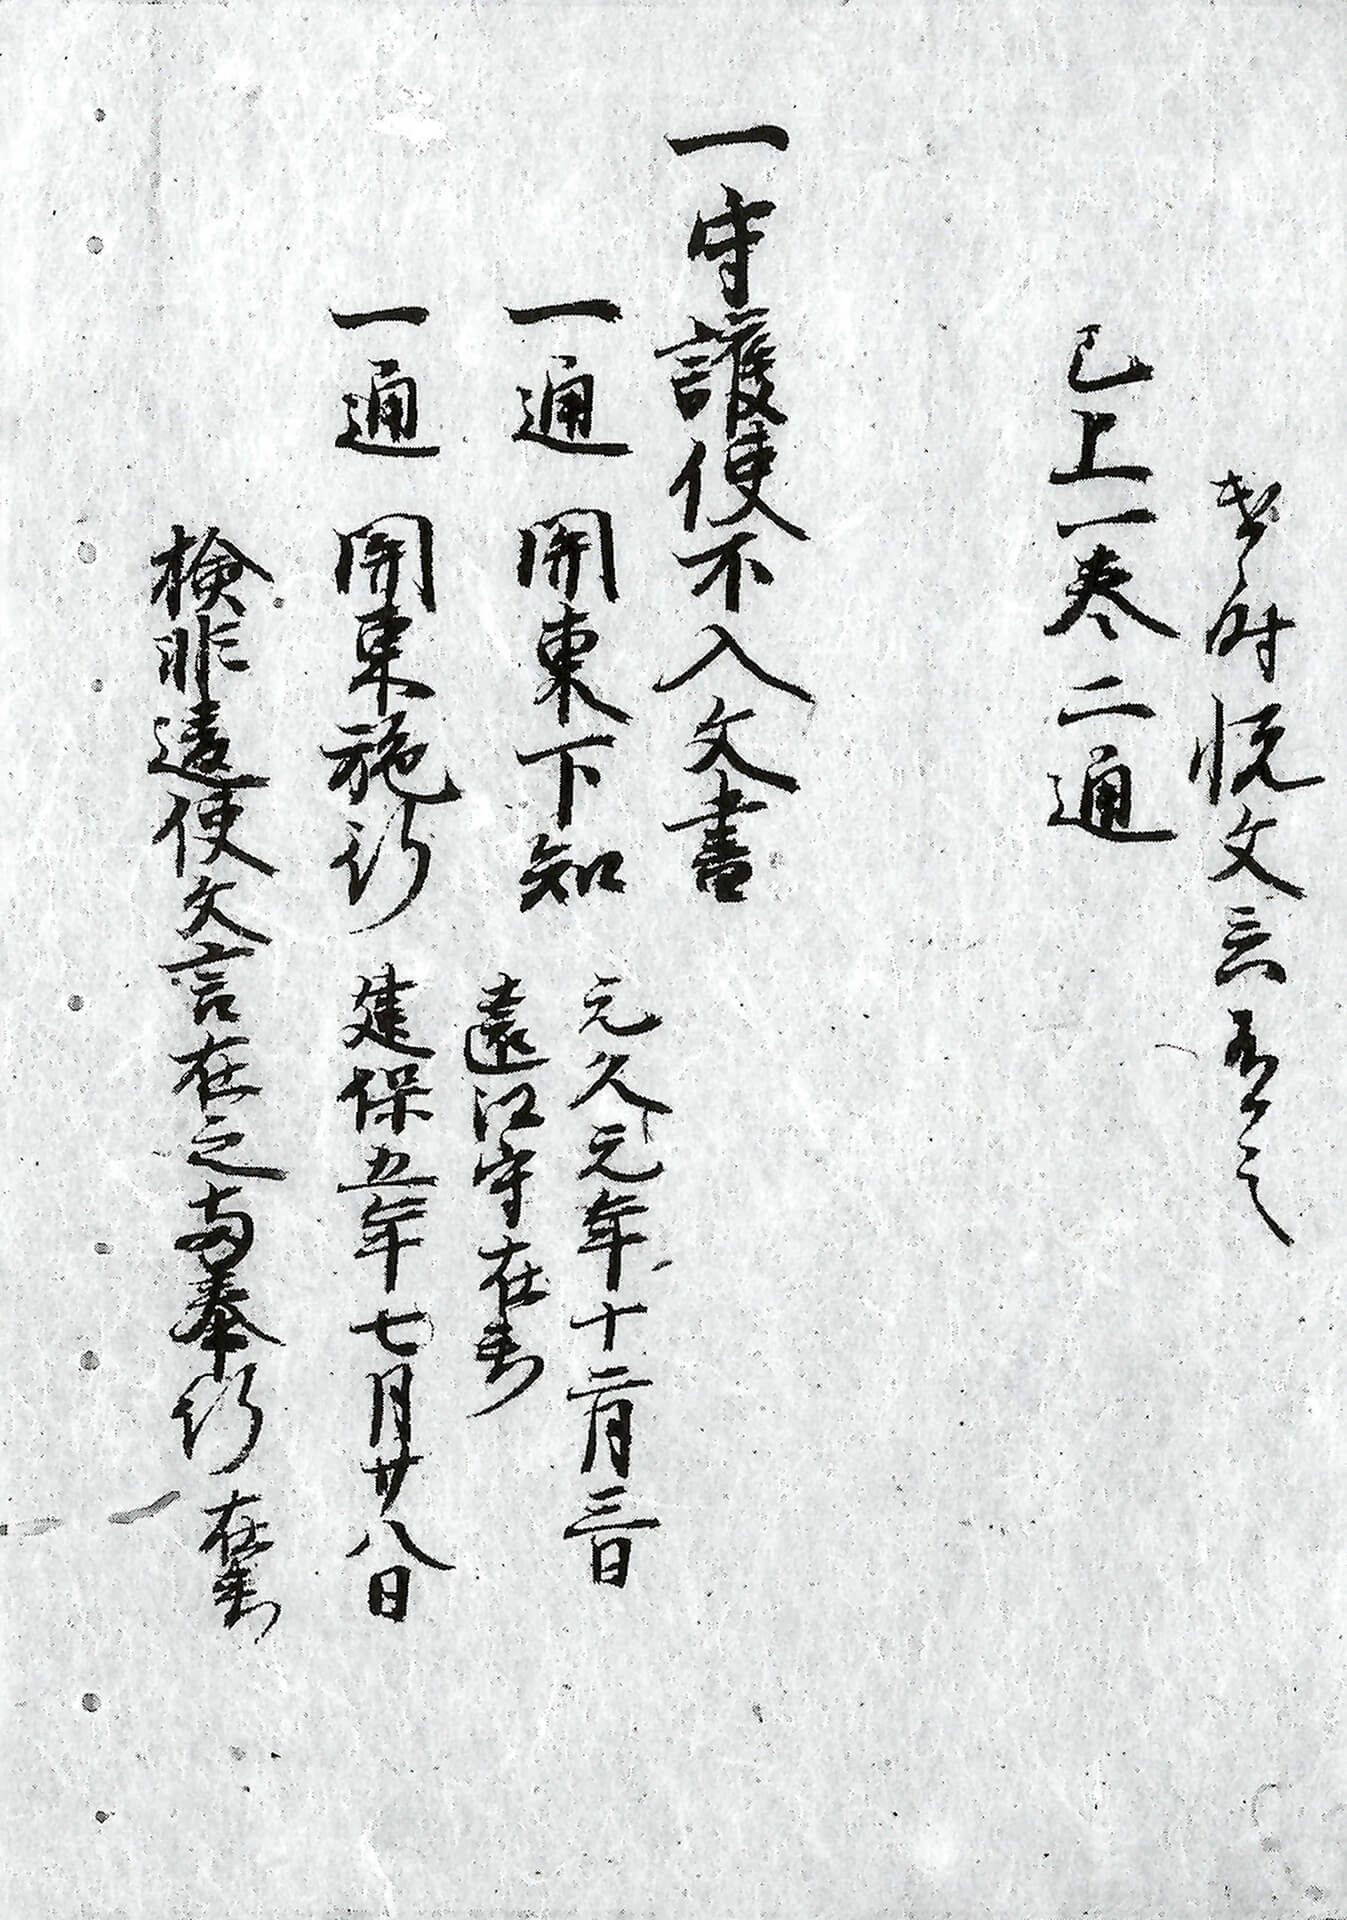 時悦文
已上一巻二通
一守護使不入文書
一通　関東下知　元久元年十二月三日
遠江守在判
一通　関東施行　建保五年七月廿八日
検非違使文言在之両奉行在判